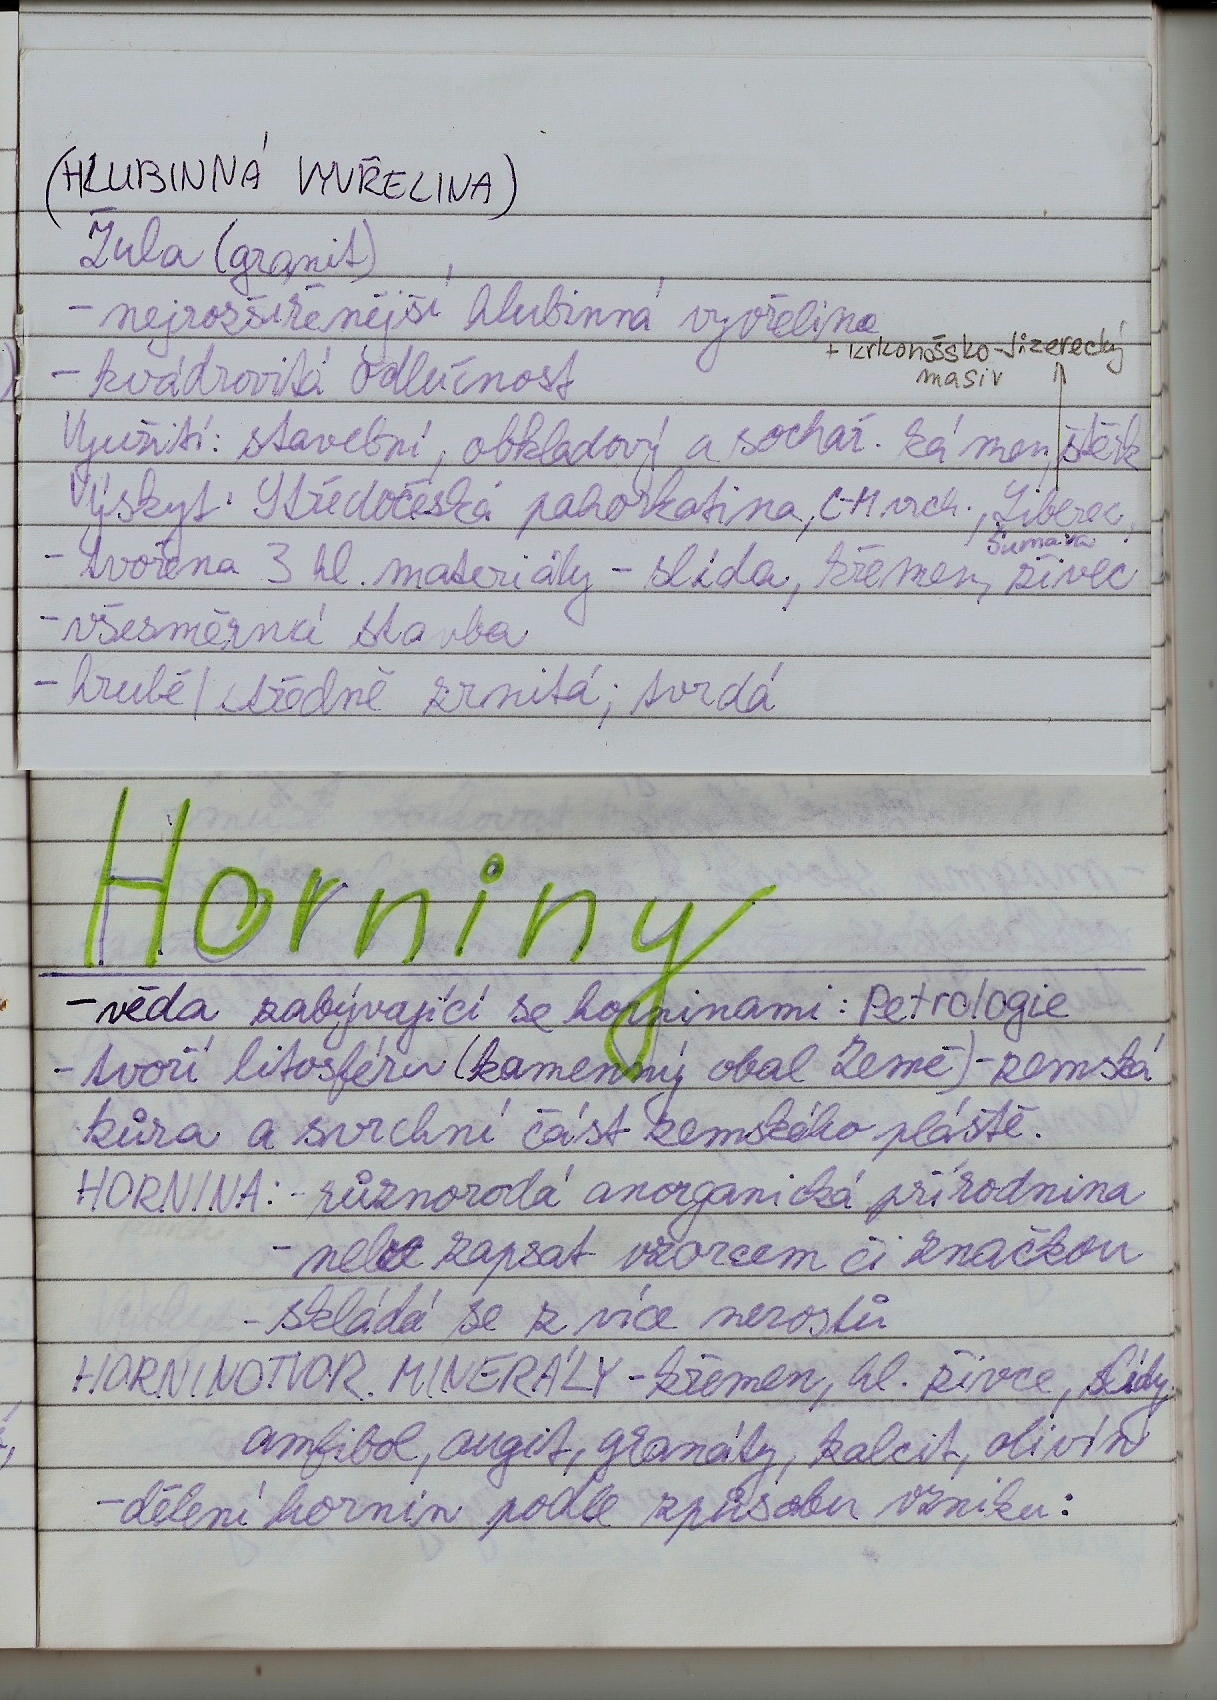 (HLUBINNÁ VYVŘELINA)
Žula (granit)
- nejrozšířenější hlubinná vyvřelina
+ krkonošsko-Jizerecký
masiv
- kvádrovitá odlučnost
Využití: stavební, obkladový a sochař. kámen, štěrk
Výskyt: Středočeská pahorkatina, Č-M vrch., Liberec,
Šumava
- tvořena 3 hl. materiály - slída, křemen, živec
- všesměrná stavba
- hrubě/středně zrnitá; tvrdá
Horniny
- věda zabývající se horninami: Petrologie
- tvoří litosféru (kamenný obal Země) - zemská
kůra a svrchní část zemského pláště.
HORNINA: - různorodá anorganická přírodnina
- nelze zapsat vzorcem či značkou
- skládá se z více nerostů
HORNINOTVOR. MINERÁLY - křemen, hl. živce, slídy,
amfibol, augit, granáty, kalcit, olivín
- dělení hornin podle způsobu vzniku: